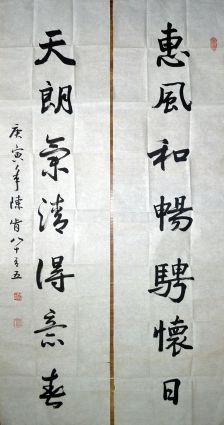 惠風和暢騁懷日
天朗氣清得意春
庚寅年陳肯八十又五